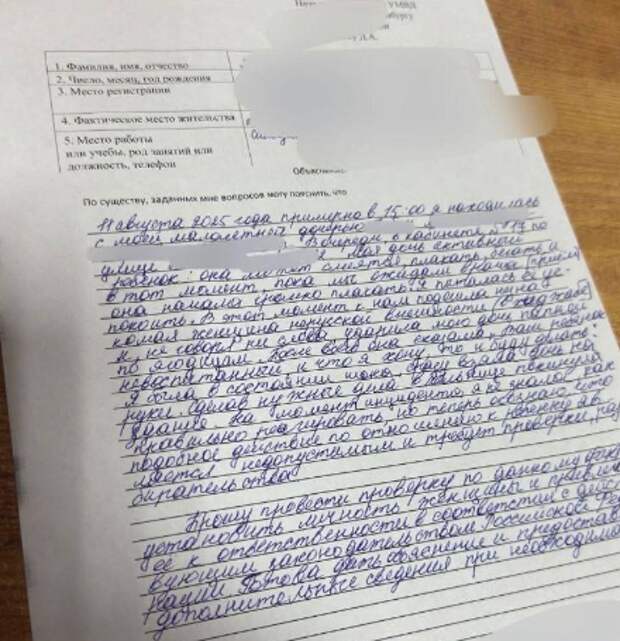 УМВД
1. Фамилия, имя, отчество
2. Число, месяц, год рождения
3. Место регистрации
4. Фактическое место жительства
5. Место работы
или учебы, род занятий или
должность, телефон
По существу, заданных мне вопросов могу пояснить, что
11 августа 2025 года примерно в 15:00 я находилась
с моей малолетней дочерью
В очереди к кабинету № 17 по
улице Моя дочь активный
ребенок: она может смеяться, плакать, бегать и
в тот момент, пока мы ожидали врача (прием)
она начала громко плакать. Я пыталась ее ус-
покоить. В этот момент к нам подошла незна-
комая женщина нерусской внешности
и, не говоря ни слова, ударила мою дочь
по ягодицам. После чего она сказала: Ваш ребенок
невоспитанный и что я хочу, то и буду делать.
Я была в состоянии шока, сразу взяла дочь на
руки. Сделав нужные дела в больнице покинула
здание. На момент инцидента, я не знала как
правильно реагировать, но теперь осознаю, что
подобное действие по отношению к ребенку яв-
ляется недопустимым и требует проверки, раз-
бирательства.
Прошу провести проверку по данному факту
установить личность женщины и привлечь
ее к ответственности в соответствии с дейст-
вующим законодательством Российской Феде-
рации. Готова дать объяснение и предостав
дополнительные сведения при необходимо